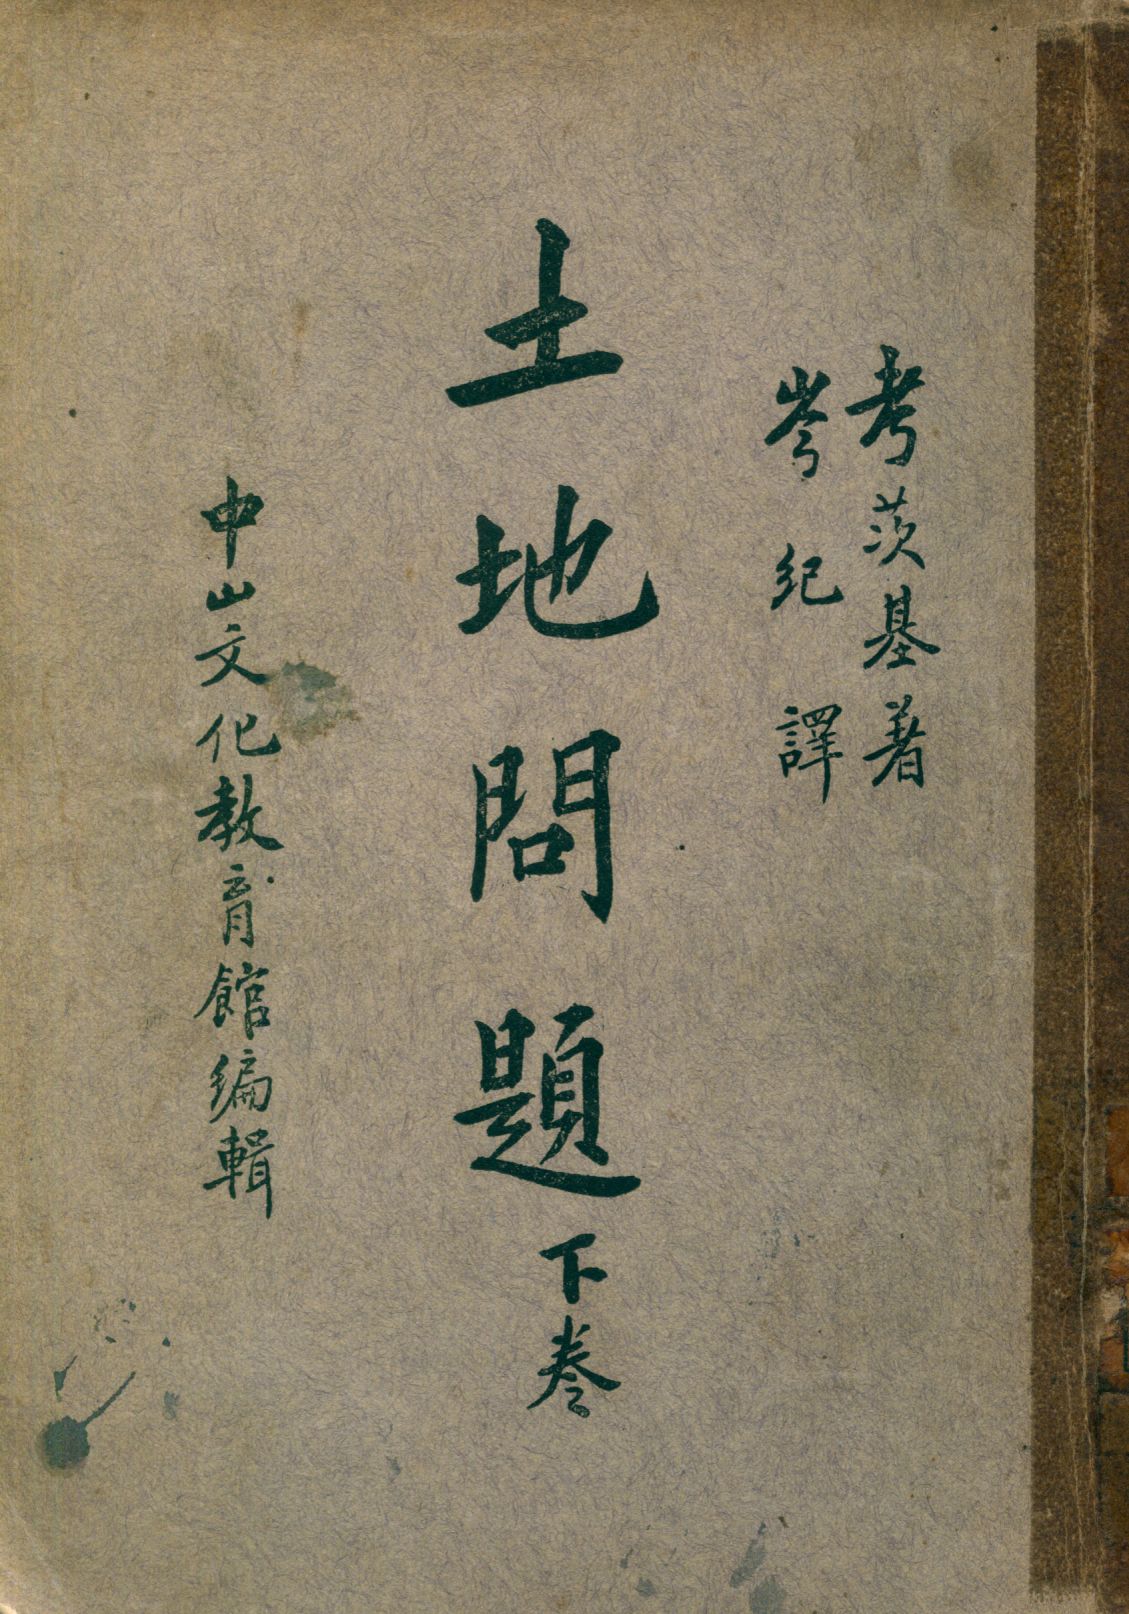 考茨基著
岑紀譯
土地問題 下卷
中山文化教育館編輯